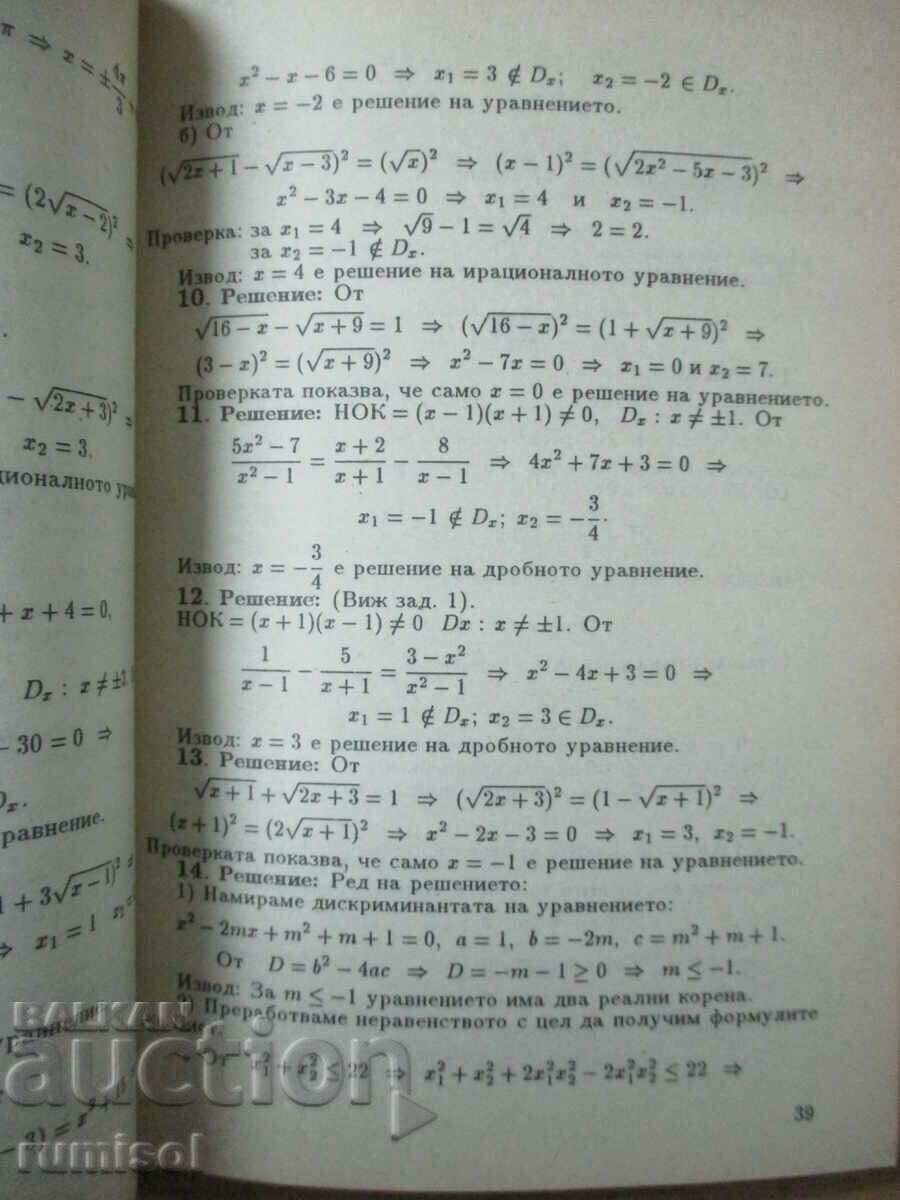 π ⇒ x = ±4π/3
= (2√(x − 2))² ⇒
x₂ = 3.
− √(2x + 3)² =
x₂ = 3.
ционалното
+ x + 4 = 0,
Dₓ : x ≠ ±3.
− 30 = 0 ⇒
Dₓ.
уравнение.
1 + 3√(x − 1))² =
⇒ x₁ = 1
x² − x − 6 = 0 ⇒ x₁ = 3 ∉ Dₓ; x₂ = −2 ∈ Dₓ.
Извод: x = −2 е решение на уравнението.
б) От
(√(2x + 1) − √(x − 3))² = (√x)² ⇒ (x − 1)² = (√(2x² − 5x − 3))² ⇒
x² − 3x − 4 = 0 ⇒ x₁ = 4 и x₂ = −1.
Проверка: за x₁ = 4 ⇒ √9 − 1 = √4 ⇒ 2 = 2.
за x₂ = −1 ∉ Dₓ.
Извод: x = 4 е решение на ирационалното уравнение.
10. Решение: От
√(16 − x) − √(x + 9) = 1 ⇒ (√(16 − x))² = (1 + √(x + 9))² ⇒
(3 − x)² = (√(x + 9))² ⇒ x² − 7x = 0 ⇒ x₁ = 0 и x₂ = 7.
Проверката показва, че само x = 0 е решение на уравнението.
11. Решение: НОК = (x − 1)(x + 1) ≠ 0, Dₓ : x ≠ ±1. От
(5x² − 7)/(x² − 1) = (x + 2)/(x + 1) − 8/(x − 1) ⇒ 4x² + 7x + 3 = 0 ⇒
x₁ = −1 ∉ Dₓ; x₂ = −3/4.
Извод: x = −3/4 е решение на дробното уравнение.
12. Решение: (Виж зад. 1).
НОК = (x + 1)(x − 1) ≠ 0 Dx : x ≠ ±1. От
1/(x − 1) − 5/(x + 1) = (3 − x²)/(x² − 1) ⇒ x² − 4x + 3 = 0 ⇒
x₁ = 1 ∉ Dₓ; x₂ = 3 ∈ Dₓ.
Извод: x = 3 е решение на дробното уравнение.
13. Решение: От
√(x + 1) + √(2x + 3) = 1 ⇒ (√(2x + 3))² = (1 − √(x + 1))² ⇒
(x + 1)² = (2√(x + 1))² ⇒ x² − 2x − 3 = 0 ⇒ x₁ = 3, x₂ = −1.
Проверката показва, че само x = −1 е решение на уравнението.
14. Решение: Ред на решението:
1) Намираме дискриминантата на уравнението:
x² − 2mx + m² + m + 1 = 0, a = 1, b = −2m, c = m² + m + 1.
От D = b² − 4ac ⇒ D = −m − 1 ≥ 0 ⇒ m ≤ −1.
Извод: За m ≤ −1 уравнението има два реални корена.
2) Преработваме неравенството с цел да получим формулите
От x₁² + x₂² ≤ 22 ⇒ x₁² + x₂² + 2x₁²x₂² − 2x₁²x₂² ≤ 22 ⇒
39
BALKAN
auction
rumisol